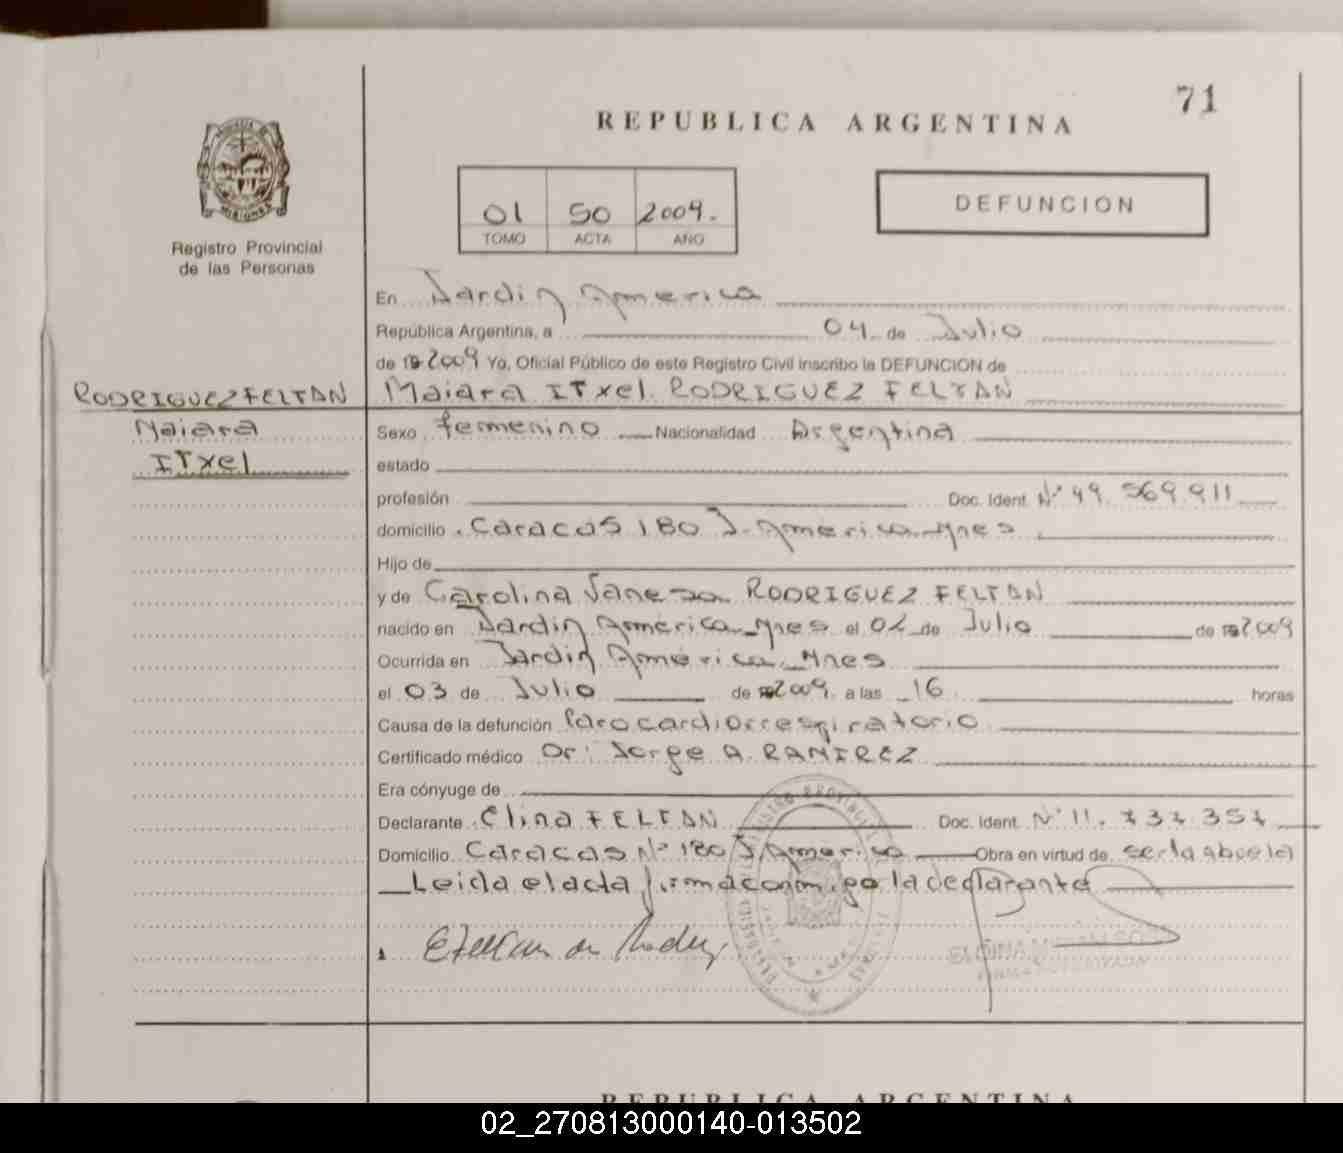 71
REPUBLICA ARGENTINA
01 50 2009.
TOMO ACTA AÑO
DEFUNCION
MISIONES
Registro Provincial
de las Personas
En Jardin America
República Argentina, a 04 de Julio
de 2009 Yo, Oficial Público de este Registro Civil inscribo la DEFUNCION de
RODRIGUEZ FELTAN
Maiara ITxel RODRIGUEZ FELTAN
Maiara
ITxel
Sexo femenino Nacionalidad Argentina
estado
profesión Doc. Ident. Nº 49.569.911
domicilio Caracas 180 J. America Mnes
Hijo de
y de Carolina Vanesa RODRIGUEZ FELTAN
nacido en Jardin America Mnes el 02 de Julio de 2009
Ocurrida en Jardin America Mnes
el 03 de Julio de 2009 a las 16 horas
Causa de la defunción Paro cardiorrespiratorio
Certificado médico Dr: Jorge A. RAMIREZ
Era cónyuge de
Declarante Elina FELTAN Doc. Ident. Nº 11.737.357
Domicilio Caracas Nº 180 J. America Obra en virtud de ser la abuela
Leida el acta firma conmigo la declarante
REPUBLICA ARGENTINA
02_270813000140-013502